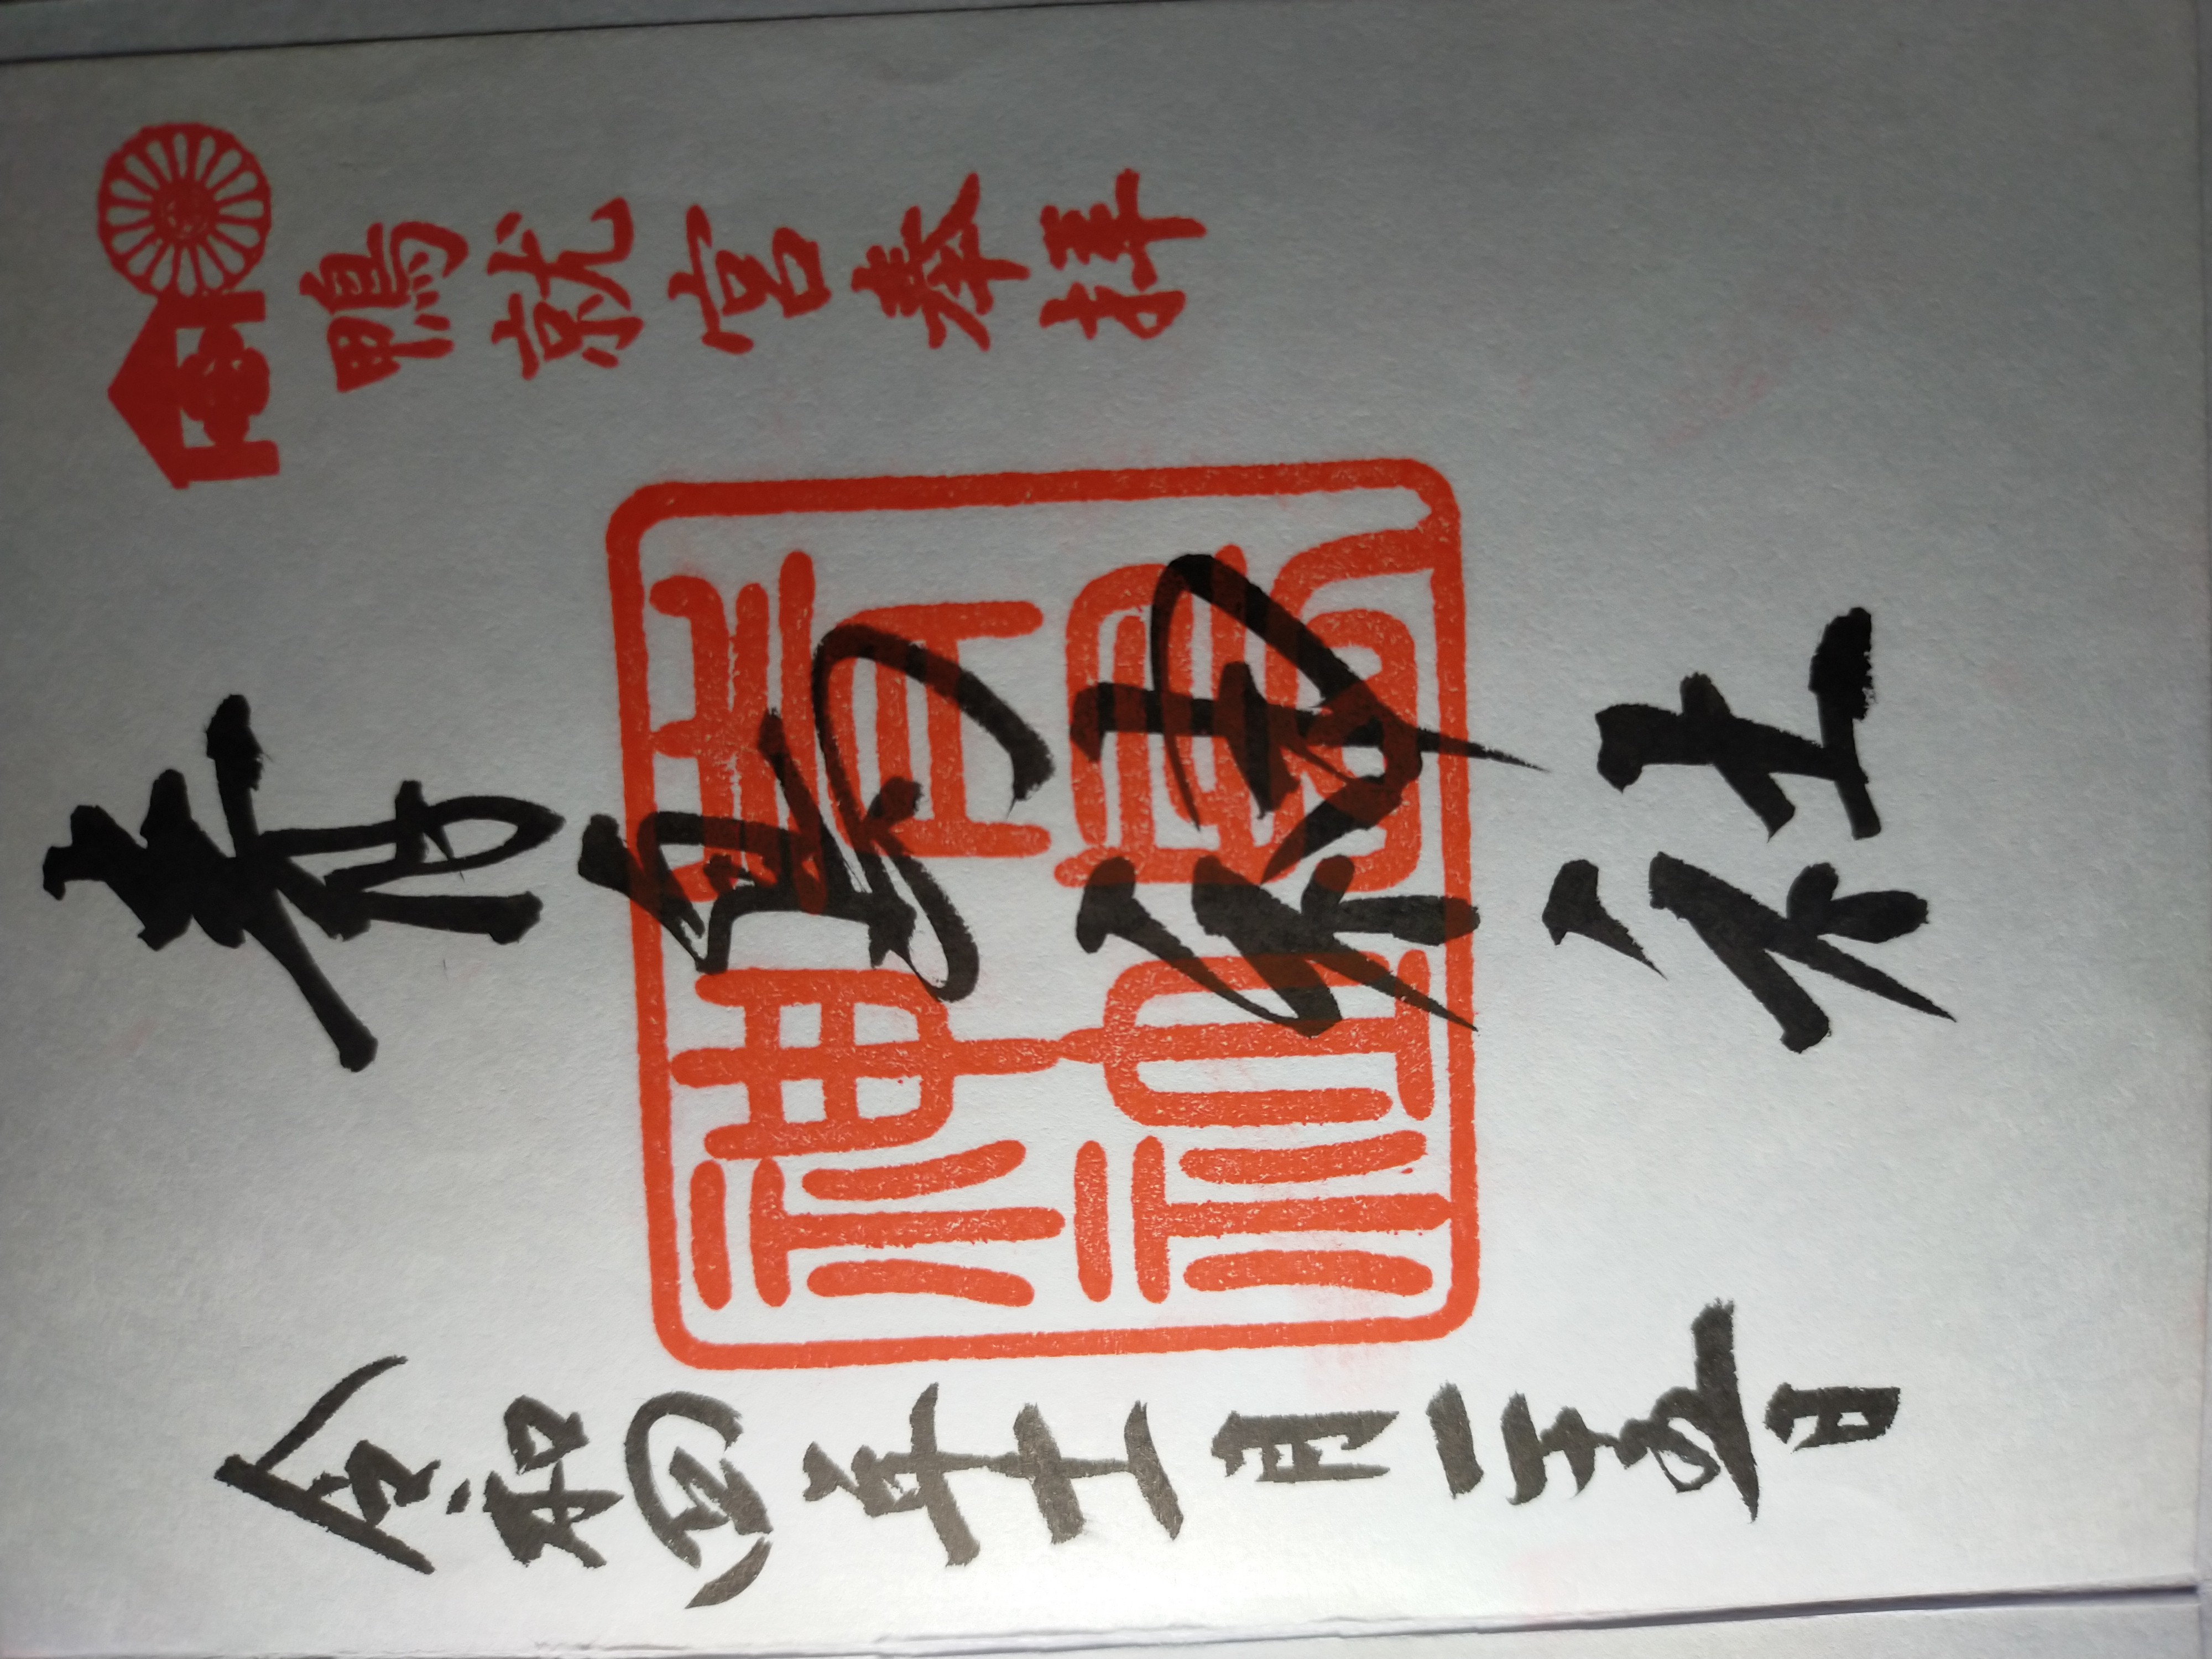 鴨就宮奉拝
青島神社
青島
神社
令和四年十一月二十五日